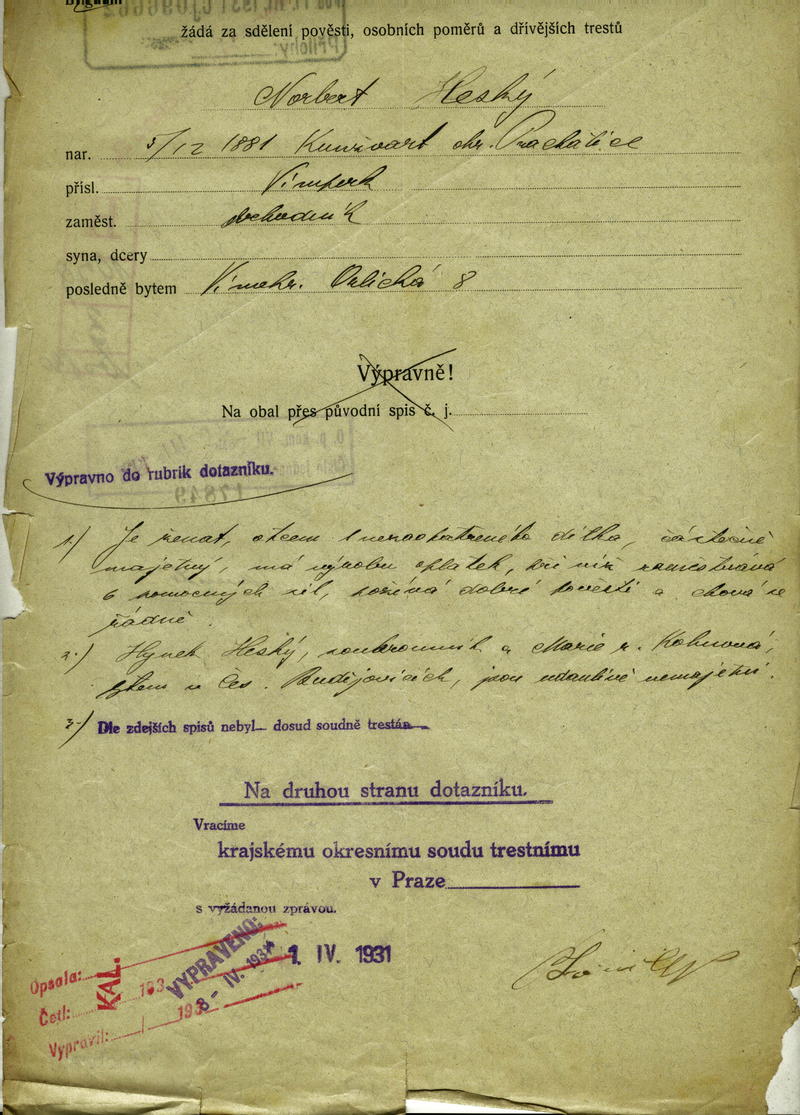 žádá za sdělení pověsti, osobních poměrů a dřívějších trestů
Norbert Heský
nar. 5/12 1881 Kunžvart okr. Prachatice
přísl. Vimperk
zaměst. obchodník
syna, dcery
posledně bytem Vinohr. Orlická 8
Výpravně!
Na obal přes původní spis č. j.
Výpravno do rubrik dotazníku.
17849
1./ Je ženat, otcem 1 nezaopatřeného dítka, částečně
majetný, má výrobu oplatek, při níž zaměstnává
6 pomocných sil, požívá dobré pověsti a chová se
řádně.
2./ Hynek Heský, soukromník a Marie r. Kohnová,
bytem v Čes. Budějovicích, jsou udanlivě nemajetní.
3./ Dle zdejších spisů nebyl dosud soudně trestán
Na druhou stranu dotazníku.
Vracíme
krajskému okresnímu soudu trestnímu
v Praze
s vyžádanou zprávou.
1. IV. 1931
VYPRAVENO:
8- IV. 1931
Opsala: KAL.
Četl: 193
Vypravil: 193